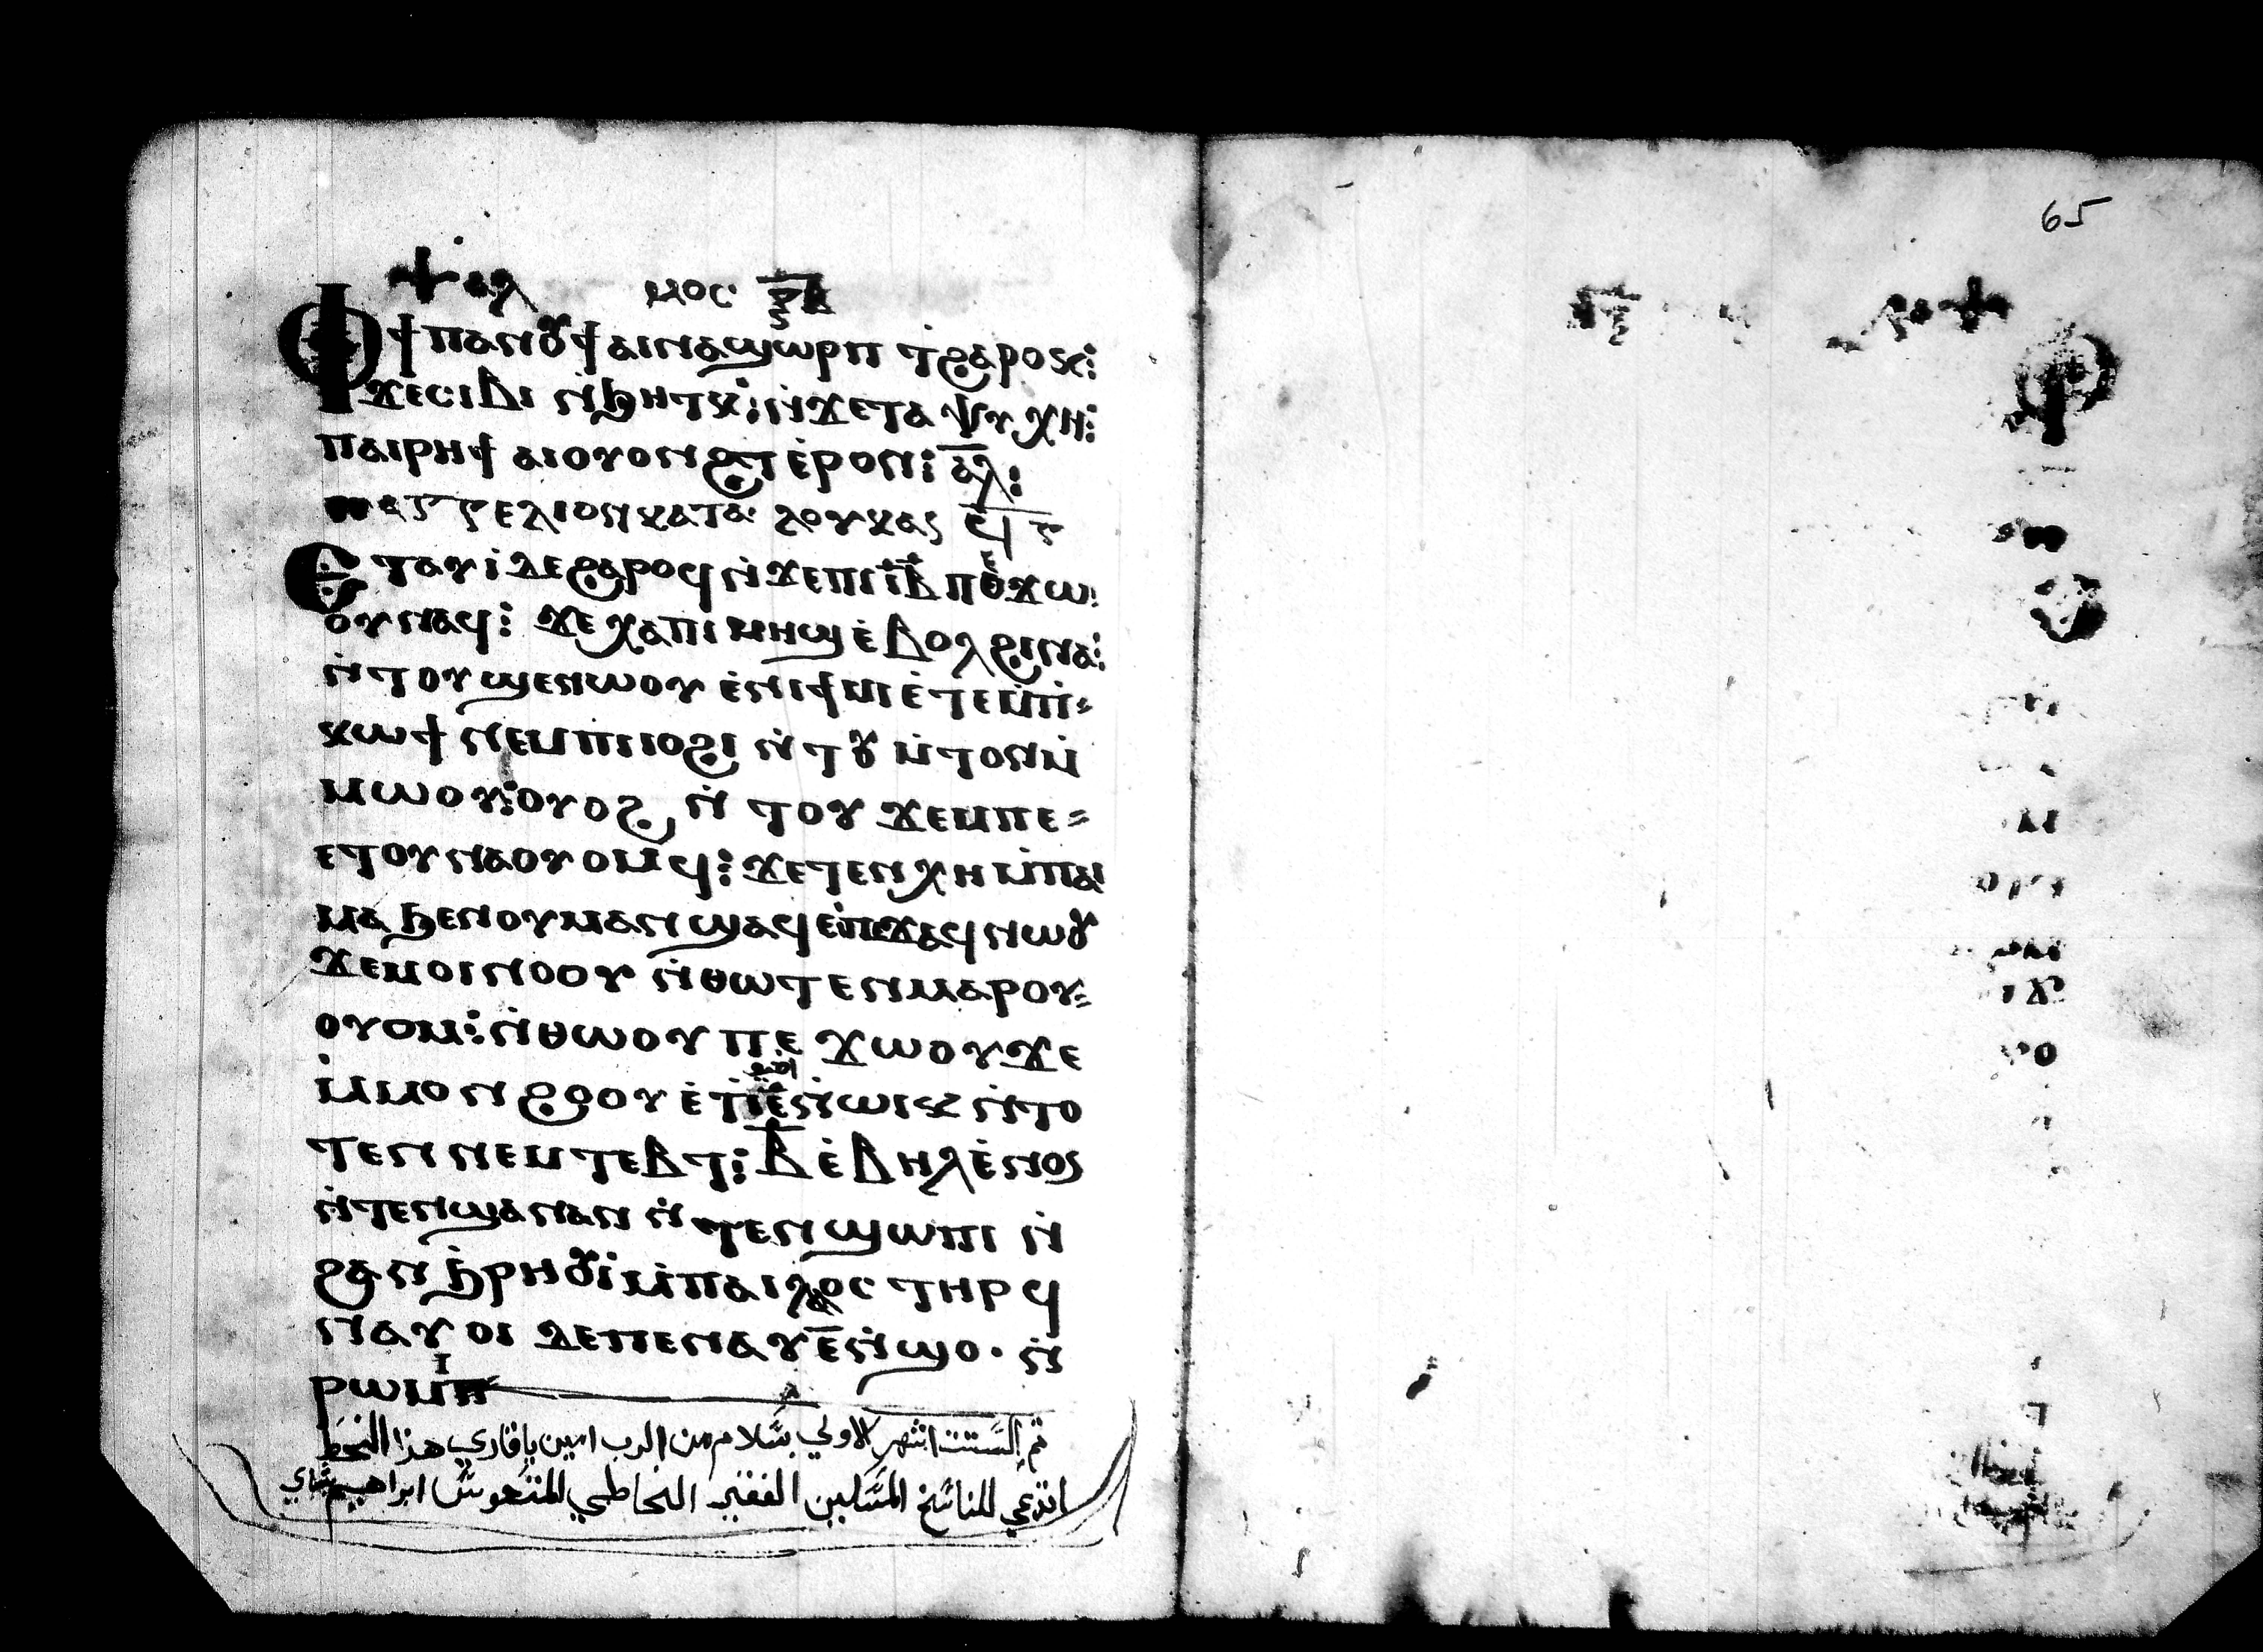 ⲯⲁⲗ ⲙⲟⲥ
ⲫϯ ⲡⲁⲛⲟⲩϯ ⲁⲓⲛⲁϣⲱⲣⲡ ⲧϩⲁⲣⲟⲕ:
ϫⲉⲥⲓⲃⲓ ⲛ̇ϧⲏⲧⲕ: ⲛ̇ϫⲉⲧⲁ ⲯⲩⲭⲏ:
ⲡⲁⲓⲣⲏϯ ⲁⲓⲟⲩⲟⲛϩⲧ ⲉ̇ⲣⲟⲕ: ⲁ̅ⲗ̅:
ⲉⲗⲓⲟⲛ ⲕⲁⲧⲁ ⲗⲟⲩⲕⲁⲥ
ⲉⲧⲁⲩⲓ̇ ⲇⲉ ϩⲁⲣⲟϥ ⲛ̇ϫⲉⲡⲓⲓ̅ⲃ̅ ⲡⲉϫⲱ
ⲟⲩⲛⲁϥ: ϫⲉ ⲭⲁⲡⲓⲙⲏϣ ⲉ̇ⲃⲟⲗ ϩⲓⲛⲁ:
ⲛ̇ⲧⲟⲩϣⲉⲛⲱⲟⲩ ⲉ̇ⲛⲓϯⲙⲓ ⲉ̇ⲧⲉⲙⲡⲓ⸗
ⲕⲱϯ ⲛⲉⲙⲡⲓⲓⲟϩⲓ ⲛ̇ⲧⲟⲩ ⲙ̇ⲧⲟⲛⲙ̇
ⲙⲱⲟⲩ: ⲟⲩⲟϩ ⲛ̇ ⲧⲟⲩ ϫⲉⲙⲡⲉ⸗
ⲉⲧⲟⲩⲛⲁⲟⲩⲟⲙϥ: ϫⲉⲧⲉⲛⲭⲏ ⲙ̇ⲡⲁⲓ
ⲙⲁ ϧⲉⲛⲟⲩⲙⲁⲛϣⲁϥⲉ ⲡⲉϫⲁϥ ⲛⲱⲟⲩ
ϫⲉⲙⲟⲓⲛⲟⲟⲩ ⲛ̇ⲑⲱⲧⲉⲛ ⲙⲁⲣⲟⲩ⸗
ⲟⲩⲟⲙ: ⲛ̇ⲑⲱⲟⲩ ⲡⲉ ϫⲱⲟⲩ ϫⲉ
ⲙ̇ⲙⲟⲛ ϩⲟⲟⲩ ⲉ̇ ⲛ̇ⲱⲓⲕ ⲛ̇ⲧⲟ
ⲧⲉⲛ ⲛⲉⲙ ⲧⲉⲃⲧ: ⲃ̅ ⲉ̇ⲃⲏⲗ ⲉ̇ⲛⲟⲥ
ⲛ̇ⲧⲉⲛϣⲁⲛⲁⲛ ⲛ̇ⲧⲉⲛϣⲱⲡⲓ ⲛ̇
ϩⲁⲛ ϧ̇ⲣⲏⲟⲩⲓ̇ ⲙ̇ⲡⲁⲓⲗⲁⲟⲥ ⲧⲏⲣϥ
ⲛⲁⲩ ⲟⲓ ⲇⲉⲡⲉⲛⲁⲩ ⲉ̅ ⲛ̇ϣⲟ· ⲛ̇
ⲣⲱⲙⲓ
تم الستت اشهر الاولي بسلام من الرب امين يا قاري هذا الخط
ادعي للناسخ المسكين الفقير الخاطي المتعوس ابراهيم
65